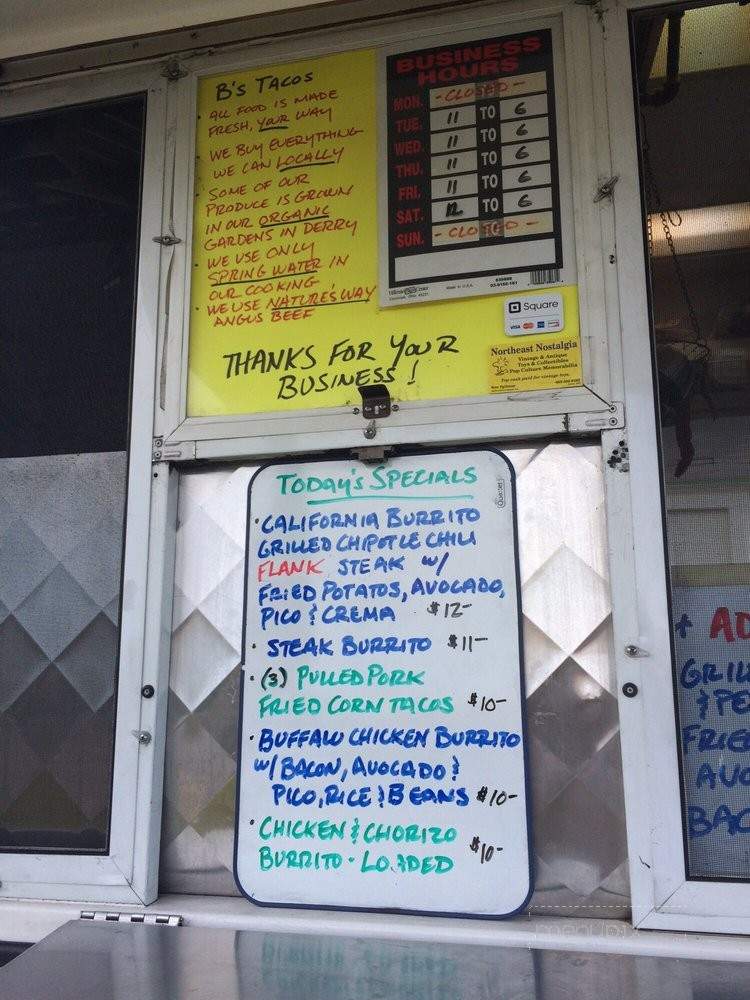 B's TACOS
· ALL FOOD IS MADE
FRESH, YOUR WAY
· WE BUY EVERYTHING
WE CAN LOCALLY
· SOME OF OUR
PRODUCE IS GROWN
IN OUR ORGANIC
GARDENS IN DERRY
· WE USE ONLY
SPRING WATER IN
OUR COOKING
· WE USE NATURE'S WAY
ANGUS BEEF
THANKS FOR YOUR
BUSINESS!
BUSINESS
HOURS
MON. - CLOSED -
TUE. 11 TO 6
WED. 11 TO 6
THU. 11 TO 6
FRI. 11 TO 6
SAT. 12 TO 6
SUN. - CLOSED -
Square
VISA
Northeast Nostalgia
Vintage & Antique
Toys & Collectibles
Pop Culture Memorabilia
Top cash paid for vintage toys.
TODAY'S SPECIALS
Quartet
· CALIFORNIA BURRITO
GRILLED CHIPOTLE CHILI
FLANK STEAK W/
FRIED POTATOS, AVOCADO,
PICO & CREMA $12-
· STEAK BURRITO $11-
· (3) PULLED PORK
FRIED CORN TACOS $10-
· BUFFALO CHICKEN BURRITO
W/ BACON, AVOCADO &
PICO, RICE & BEANS $10-
· CHICKEN & CHORIZO
BURRITO - LOADED $10-
+ AD
GRIL
& PE
FRIE
AVO
BAC
menupix